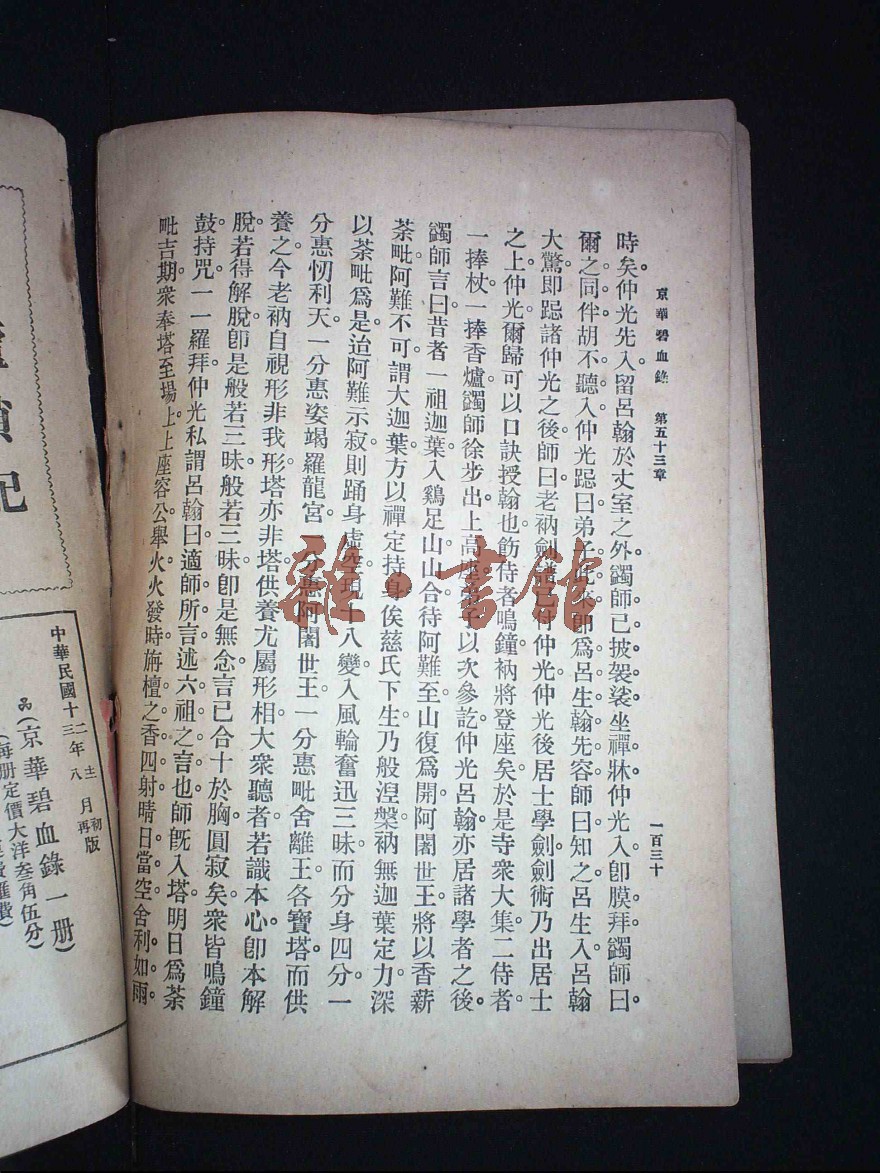 京華碧血錄　第五十三章　一百三十
時矣。仲光先入留呂翰於丈室之外。蠲師已披袈裟坐禪牀仲光入卽膜拜蠲師曰。
爾之同伴胡不聽入仲光跽曰弟子此來卽爲呂生翰先容師曰知之。呂生入呂翰
大驚卽跽諸仲光之後師曰老衲劍術已付仲光仲光後居士學劍劍術乃出居士
之上。仲光爾歸可以口訣授翰也。飭侍者鳴鐘衲將登座矣。於是寺衆大集二侍者
一捧杖。一捧香爐蠲師徐步出上高座弟子以次參訖仲光呂翰亦居諸學者之後。
蠲師言曰昔者一祖迦葉入鷄足山山合待阿難至山復爲開阿闍世王將以香薪
荼毗阿難不可。謂大迦葉方以禪定持身俟慈氏下生乃般湼槃衲無迦葉定力深
以荼毗爲是。迨阿難示寂則踊身虛空現十八變入風輪奮迅三昧而分身四分一
分惠忉利天一分惠娑竭羅龍宮一分惠阿闍世王一分惠毗舍離王各寶塔而供
養之。今老衲自視形非我形塔亦非塔供養尤屬形相大衆聽者若識本心卽本解
脫。若得解脫卽是般若三昧般若三昧卽是無念。言已合十於胸圓寂矣衆皆鳴鐘
鼓持咒。一一羅拜仲光私謂呂翰曰。適師所言述六祖之言也。師旣入塔明日爲荼
毗吉期。衆奉塔至場上。上座容公舉火。火發時。旃檀之香四射。晴日當空。舍利如雨。
雜·書館
記
中華民國十二年
十三年八
月初版
再版
(京華碧血錄一册)
(每册定價大洋叁角伍分)